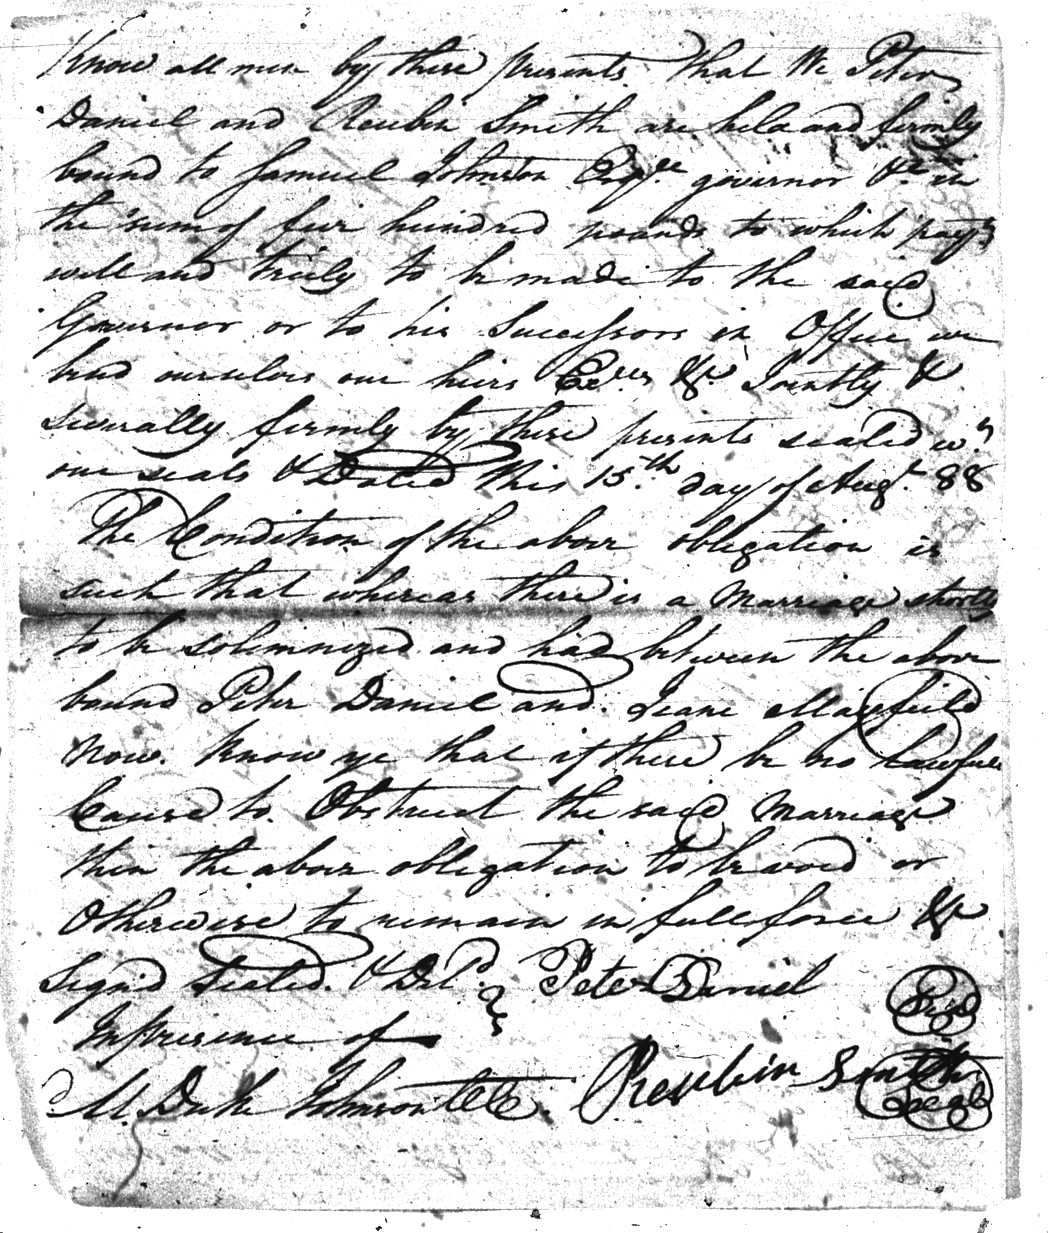 Know all men by these presents that We Peter
Daniel and Reubin Smith are held and firmly
bound to Samuel Johnston Esqre governor &c in
the sum of five hundred pounds to which paymt
well and truly to be made to the said
Governor or to his Successors in Office we
bind ourselves our heirs Exrs &c. Jointly &
severally firmly by these presents sealed wth
our seals & Dated this 15th day of Augt. 88
The Condition of the above obligation is
such that whereas there is a Marriage shortly
to be solemnized and had between the above
bound Peter Daniel and Jeane Maxfeild
Now. Know ye that if there be no lawfull
Cause to Obstruct the said Marriage
then the above obligation to be void or
Otherwise to remain in full force &c
Signd Sealed. & Deld. Peter Daniel Seal
In presence of
M. Duke Johnson Reubin Smith Seal